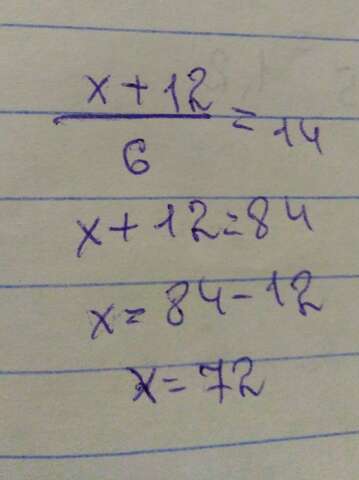 x + 12
6
= 14
x + 12 = 84
x = 84 - 12
x = 72